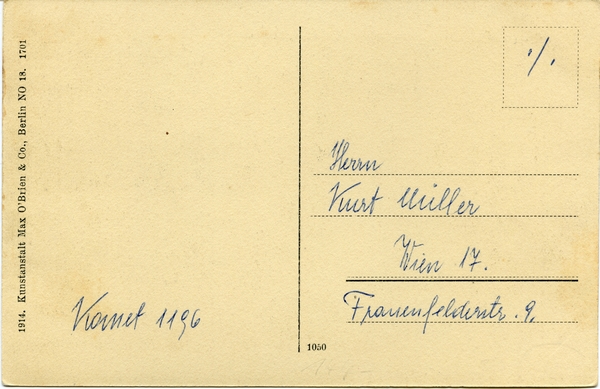 1914. Kunstanstalt Max O'Brien & Co., Berlin NO 18. 1701
Komet 1196
·/.
Herrn
Kurt Müller
Wien 17.
Frauenfelderstr. 9.
1050